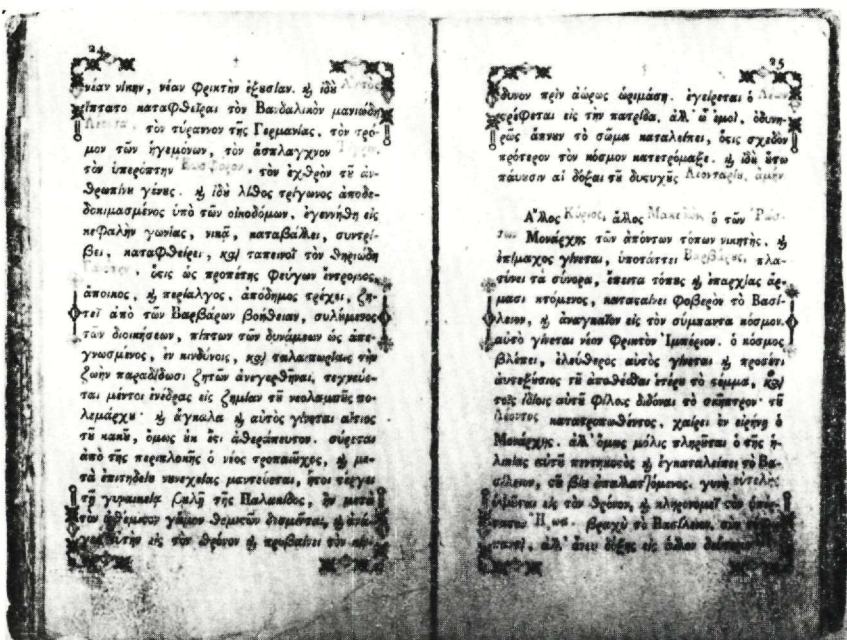 24
νέαν νίκην, νέαν φρικτὴν ἐξȣσίαν. ϗ ἰδȣ̀
ἵπτατο καταφθεῖραι τὸν Βανδαλικὸν μανιώδη
Λέοντα, τὸν τύραννον τῆς Γερμανίας, τὸν τρό-
μον τῶν ἡγεμόνων, τὸν ἄσπλαγχνον
τὸν ὑπερόπτην Ἑωσφόρον, τὸν ἐχθρὸν τȣ͂ ἀν-
θρωπίνȣ γένȣς. ϗ ἰδȣ̀ λίθος τρίγωνος ἀποδε-
δοκιμασμένος ὑπὸ τῶν οἰκοδόμων, ἐγεννήθη εἰς
κεφαλὴν γωνίας, νικᾷ, καταβάλλει, συντρί-
βει, καταφθείρει, καὶ ταπεινοῖ τὸν θηριώδη
ὅςις ὡς προπέτης φεύγων ἔντρομος,
ἄποικος, ϗ περίαλγος, ἀπόδημος τρέχει, ζη-
τεῖ ἀπὸ τῶν Βαρβάρων βοήθειαν, συλώμενος
τῶν διοικήσεων, πίπτων τῶν δυνάμεων ὡς ἀπε-
γνωσμένος, ἐν κινδύνοις, καὶ ταλαιπωρίαις τὴν
ζωὴν παραδίδωσι ζητῶν ἀνεγερθῆναι, τεχνεύε-
ται μέντοι ἐνέδρας εἰς ζημίαν τȣ͂ νεολαμπȣ͂ς πο-
λεμάρχȣ· ϗ ἀγκαλὰ ϗ αὐτὸς γίνεται αἴτιος
τȣ͂ κακȣ͂, ὅμως ȣ̓κ ἔςι ἀθεράπευτον. σύρεται
ἀπὸ τῆς περιπλοκῆς ὁ νέος τροπαιȣ͂χος, ϗ με-
τὰ ἐπιτηδείȣ συνεχείας μαντεύεται, ἤτοι τέργει
τῇ γυναικείᾳ βȣλῇ τῆς Παλακίδος, ἣν μετὰ
τὸν ἀθέμιτον γάμον θεμιτῶν δισμεῖται, ϗ ἀνά-
γει αὐτὴν εἰς τὸν θρόνον ϗ προβαίνει τὸν κίν-
25
δυνον πρὶν ἀώρως ὡριμάση. ἐγείρεται ὁ Λέων
τρέφεται εἰς τὴν πατρίδα, ἀλλ' ὦ ἐμοὶ, ὀδυνη-
ρῶς ἄπνȣν τὸ σῶμα καταλείπει, ὅςις σχεδὸν
πρότερον τὸν κόσμον κατετρόμαξε. ϗ ἰδȣ̀ ȣ́τω
παύȣσιν αἱ δόξαι τȣ͂ δυςυχȣ͂ς Λεονταρίȣ, ἀμήν
Ἄλλος Κύριος, ἄλλος Μακεδὼν ὁ τῶν Ῥώσ-
των Μονάρχης τῶν ἀπόντων τόπων νικητὴς, ϗ
ἐπίμαχος γίνεται, ὑποτάττει Βαρβάρȣς, πλα-
τύνει τὰ σύνορα, ἔπειτα τόπȣς ϗ ἐπαρχίας ἅρ-
μασι κτόμενος, καταςαίνει φοβερὸν τὸ Βασί-
λειον, ϗ ἀναγκαῖον εἰς τὸν σύμπαντα κόσμον.
αὐτὸ γίνεται νέον φρικτὸν Ἰμπέριον. ὁ κόσμος
βλέπει, ἐλεύθερος αὐτὸς γίνεται ϗ προςέτι
αὐτεξȣ́σιος τȣ͂ ἀποθέσθαι ἑτέρȣ τὸ ςέμμα, καὶ
τοῖς ἰδίοις αὐτȣ͂ φίλοις διδόναι τὸ σκῆπτρον· τȣ͂
Λέοντος κατατροπωθέντος, χαίρει ἐν εἰρήνῃ ὁ
Μονάρχης. ἀλλ' ὅμως μόλις πληρȣ͂ται ὁ τῆς ἡ-
λικίας αὐτȣ͂ πεντηκοςὸς ϗ ἐγκαταλείπει τὸ Βα-
σίλειον, τȣ͂ βίȣ ἀπαλλαττόμενος. γυνὴ εὐτελὴς
ὑψȣ͂ται εἰς τὸν θρόνον, ϗ κληρονομεῖ τὸν
βραχὺ τὸ Βασίλειον,
παντὶ, ἀλλ' ἄνευ δόξης εἰς ἄλλον